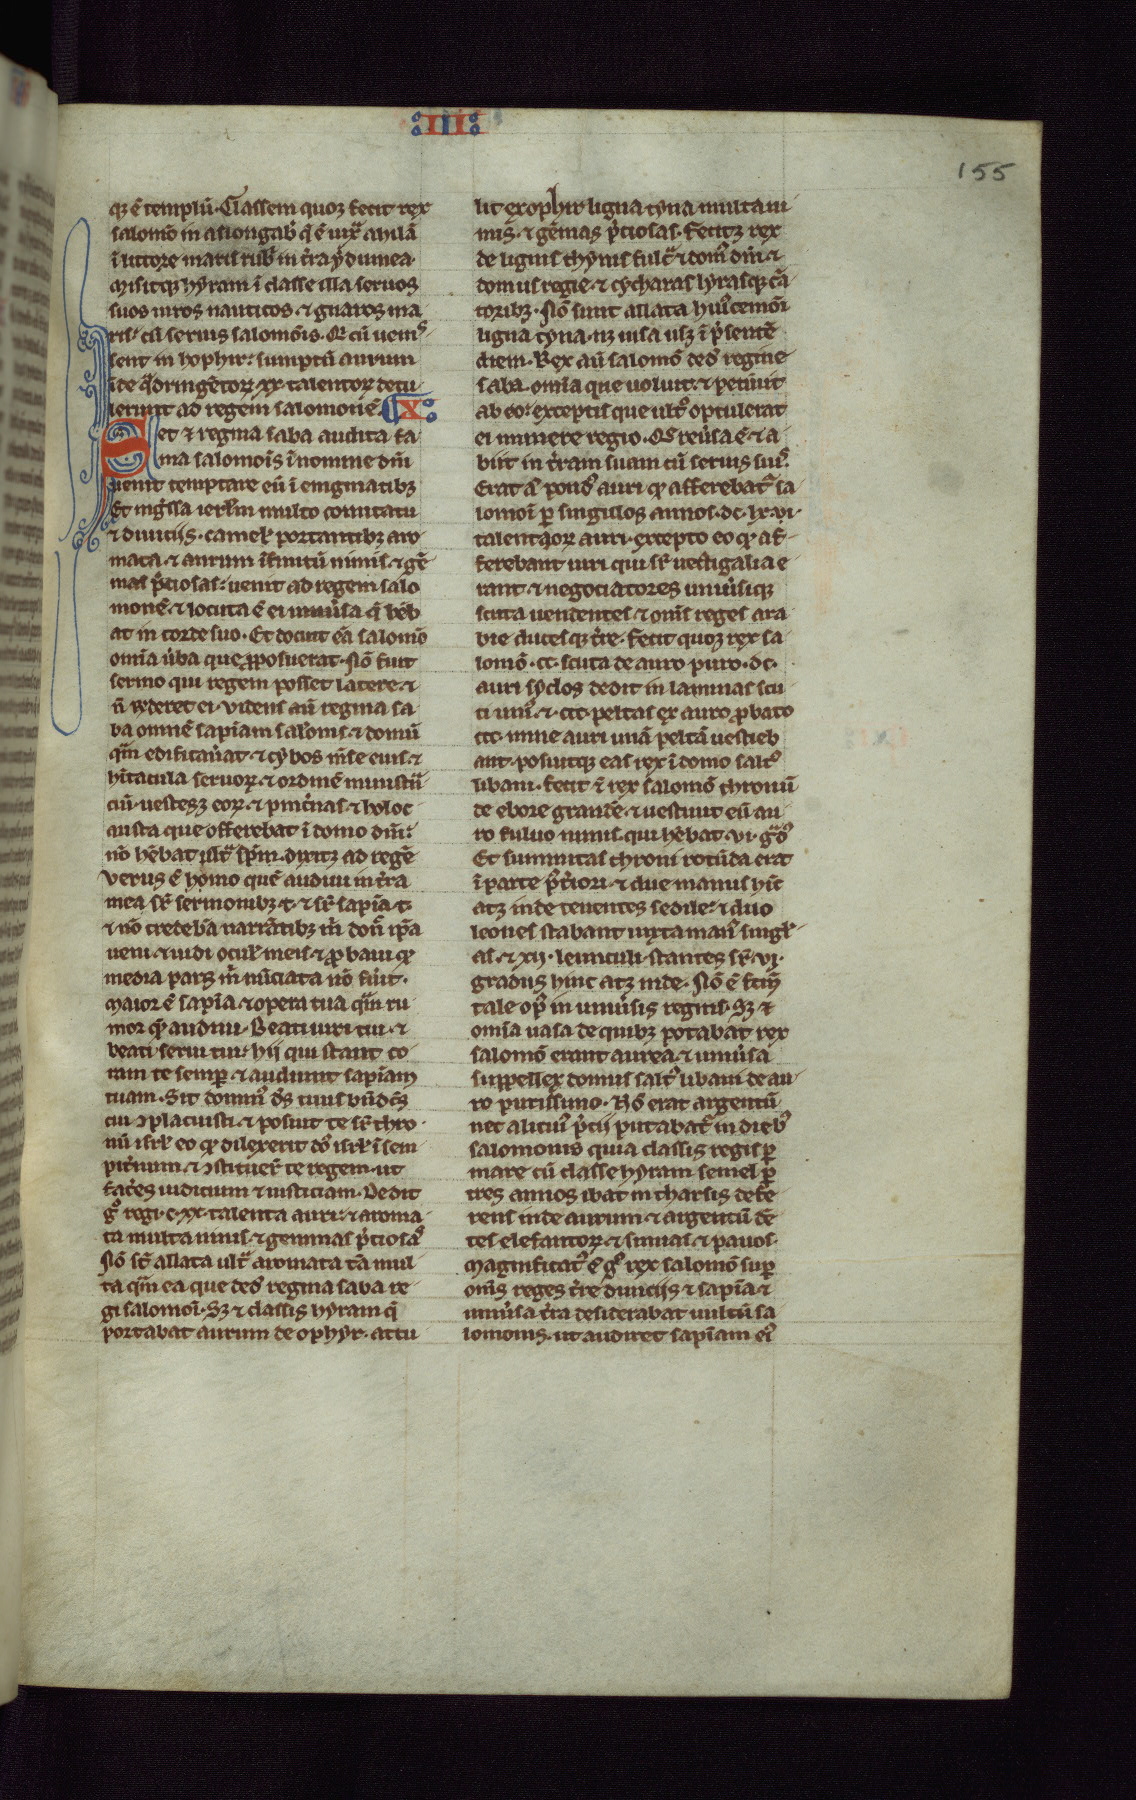 ·III·
155
q; ē templū. Classem quoq; fecit rex
salomō in asiongab̄ q̄ ē iuxͣ aylā
ī littore maris rub̄ in t̄ra ydumea.
Misitq; hyram ī classe illa seruos
suos uiros nauticos. ⁊ gnaros ma
ris. cū seruis salomōis. Qi cū uenis
sent in hophir. sumptū aurum
īde q̄dringētoꝝ xx. talentoꝝ detu
lerunt ad regem salomonē. X.
Set ⁊ regina saba audita fa
ma salomoīs ī nomine dnī
uenit temptare eū ī enigmatib;
Et īgressa ierl̄m multo comitatu
⁊ diuitiis. camel̄ portantib; aro
mata. ⁊ aurum īfinitū nimis. ⁊ gē
mas p̄ciosas. uenit ad regem salo
monē. ⁊ locuta ē ei uniu̇sa q̄ hēb
at in corde suo. Et docuit eā salomō
omīa ūba que ꝓposuerat. Nō fuit
sermo qui regem posset latere. ⁊
n̄ r̄nderet ei. Videns aū regina sa
ba omnē sapīam salōis. ⁊ domū
qͣm edificau̇at. ⁊ cybos mēse eius. ⁊
hītacula seruoꝝ. ⁊ ordinē ministrā
ciū. uestesq; eoꝝ. ⁊ pincn̄as. ⁊ holoc
austa que offerebat ī domo dnī.
nō hēbat ultͣ sp̄m. dixitq; ad regē
Verus ē sermo quē audiui in t̄ra
mea sr̄ sermonib; t. ⁊ sr̄ sapīa t.
⁊ nō credebā narrātib; m̄ don̄ ip̄a
ueni. ⁊ uidi ocul̄ meis. ⁊ ꝓbaui qꝫ
media pars m̄ nūciata nō fu̇it.
Maior ē sapīa. ⁊ opera tua qͣm ru
mor quē audiui. Beati uiri tui. ⁊
beati serui tui. hij qui stant co
ram te semꝑ. ⁊ audiunt sapīam
tuam. Sit domin᷒ ds̄ tuus bn̄dc̄s
cui ꝯplacuisti. ⁊ posuit te sr̄ thro
nū isrl̄. eo qꝫ dilexerit dn̄s isrl̄ ī sem
pit̄num. ⁊ ꝯstituer̄ te regem. ut
fac̄es iudicium ⁊ iusticiam. Dedit
gͦ regi. c. xx. talenta auri. ⁊ aroma
ta multa nimis. ⁊ gemmas p̄ciosas
Nō st̄ allata ultͣ aromata tā mul
ta qͣm ea que ded̄ regina saba re
gi salomoī. Sꝫ ⁊ classis hyram q̄
portabat aurum de ophyr. attu
lit ex ophir ligna tyna multa ni
mis. ⁊ gēmas p̄ciosas. Fecitq; rex
de lignis thynis fulcͣ ⁊ dom᷒ dnī. ⁊
domus regie. ⁊ cycharas lyrasq; cā
torib;. Nō sunt allata hui᷒cemōi
ligna tyna. nꝫ uisa usq; ī p̄sentē
diem. Rex aū salomō ded̄ regine
saba. omīa que uoluit. ⁊ petiuit
ab eo. exceptis que ultͦ optulerat
ei munere regio. Qe reu̇sa ē. ⁊ a
biit in t̄ram suam cū seruis suis.
Erat aū pond᷒ auri qꝫ afferebat᷒ sa
lomoī ꝑ singulos annos. dc. lx. vi.
talentoꝝ auri. excepto eo qꝫ af
ferebant uiri qui sr̄ uectigalia e
rant ⁊ negociatores uniu̇siq;
scuta uendentes. ⁊ omīs reges ara
bie. ducesq; t̄re. Fecit quoq; rex sa
lomō. cc. scuta de auro puro. dc.
auri syclos dedit in laminas scu
ti uni᷒. ⁊. ccc. peltas ex auro ꝓbato
ccc. mine auri unā peltā uestieb
ant. posuitq; eas rex ī domo salt᷒
libani. Fecit ē rex salomō thronū
de ebore grandē. ⁊ uestiuit eū au
ro fuluo nimis. qui hēbat. vi. gͣd᷒
Et summitas throni rotūda erat
ī parte p̄t̄iori. ⁊ due manus hīc
atq; inde tenentes sedile. ⁊ duo
leones stabant iuxta man᷒ singl̄
as. ⁊ xij. leunculi stantes sr̄. vj.
gradus hinc atq; inde. Nō ē fc̄m
tale op᷒ in uniu̇sis regnis. Sꝫ ⁊
omīa uasa de quib; potabat rex
salomō erant aurea. ⁊ uniu̇sa
suppellex domus salt᷒ libani de au
ro purissimo. Nō erat argentū
nec alicui᷒ p̄cij putabat᷒ in dieb᷒
salomonis quia classis regis ꝑ
mare cū classe hyram semel ꝑ
tres annos ibat in tharsis defe
rens inde aurum ⁊ argentū dē
tes elefantoꝝ. ⁊ simias. ⁊ pauos.
Magnificat᷒ ē gͦ rex salomō suꝑ
omīs reges t̄re diuiciis. ⁊ sapīa. ⁊
uniu̇sa t̄ra desiderabat uultū sa
lomonis. ut audiret sapīam ei᷒